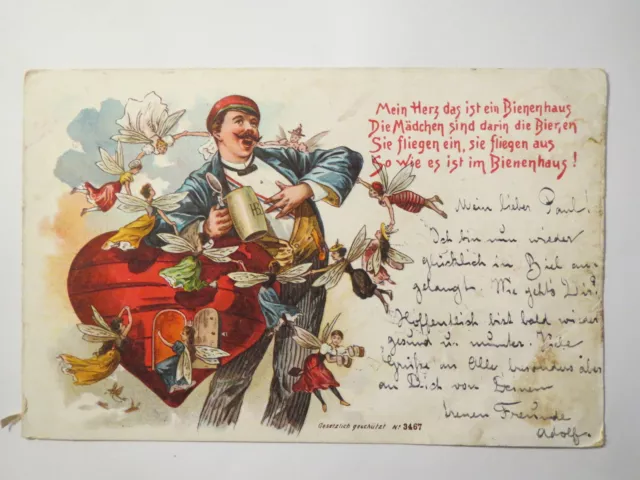 Mein Herz das ist ein Bienenhaus
Die Mädchen sind darin die Bier,en
Sie fliegen ein, sie fliegen aus
So wie es ist im Bienenhaus!
Mein lieber Paul!
Ich bin nun wieder
glücklich in Biel an-
gelangt. Wie geht's Dir?
Hoffentlich bist bald wieder
gesund u. munter. Viele
Grüße an Alle, besonders aber
an Dich von Deinem
treuen Freunde
Adolf.
Gesetzlich geschützt Nº 3467